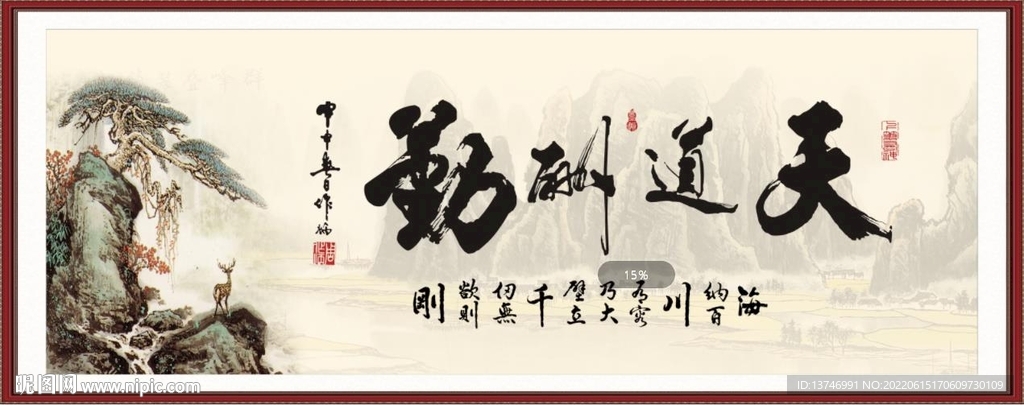 天道酬勤
海納百川有容乃大壁立千仞無欲則剛
15%
昵图网 www.nipic.com
ID:13746991 NO:20220615170609730109